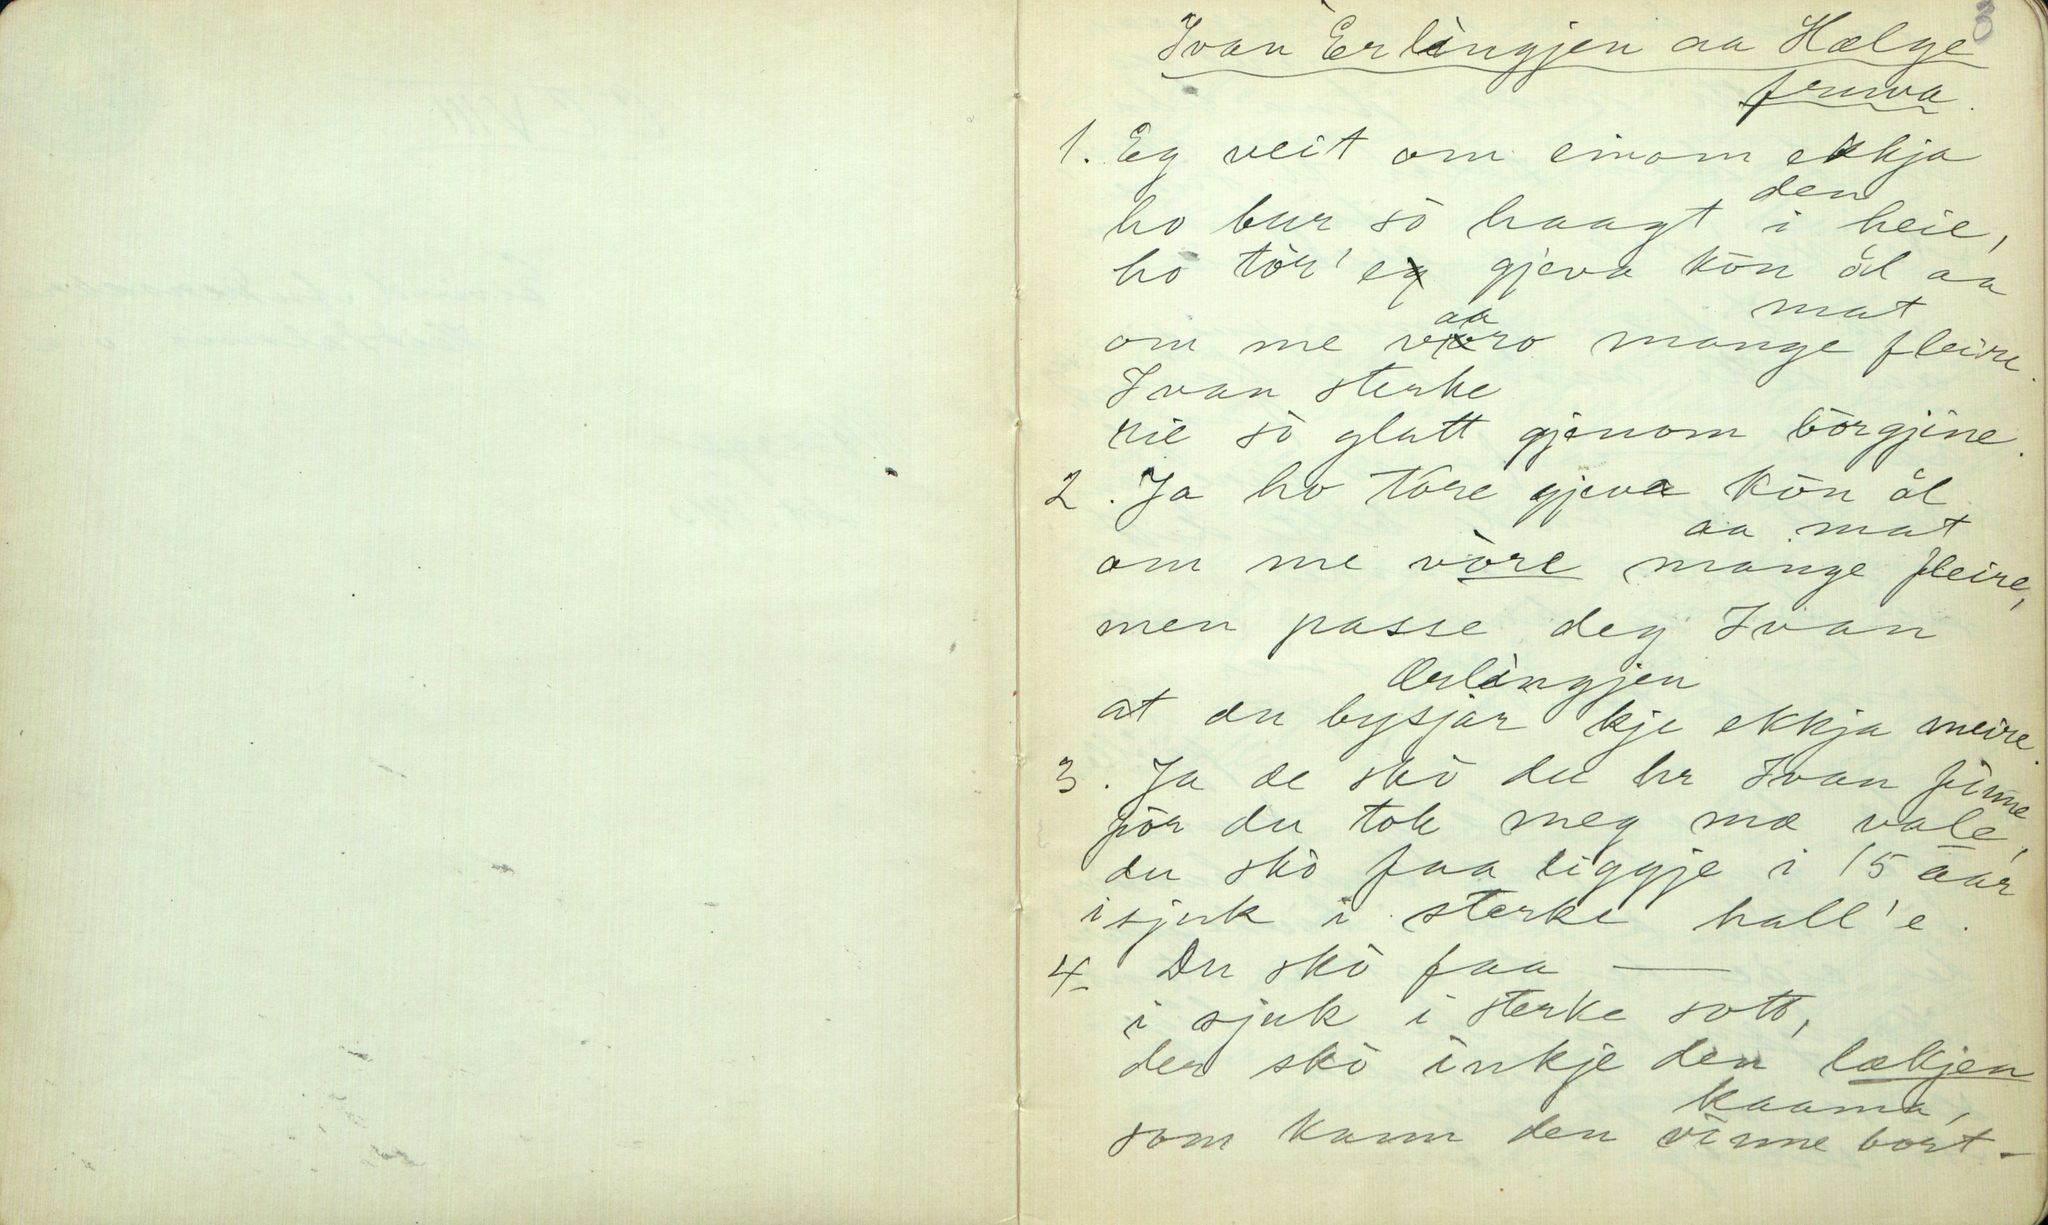 8
Ivan Erlingjen aa Hælge
fruva.
1. Eg veit om einom ekkja
ho bur sò haagt i den heie,
ho tòr' eg gjeva kòn òl aa mat
om me vaaro mange fleire.
Ivan sterke
rie sò glatt gjenom börgjine.
2. Ja ho tore gjeva kòn òl
aa mat
om me vòre mange fleire,
men passe deg Ivan
Ærlingjen
at du bysjar kje ekkja meire.
3. Ja de skò du hr Ivan finne
fòr du tok meg mæ vale,
du skò faa liggje i 15 aar
i sjuk i sterke hall'e.
4. Du skò faa —
i sjuk i sterke sott,
der skò inkje den lækjen
kaama,
som kann den vinne bort. —